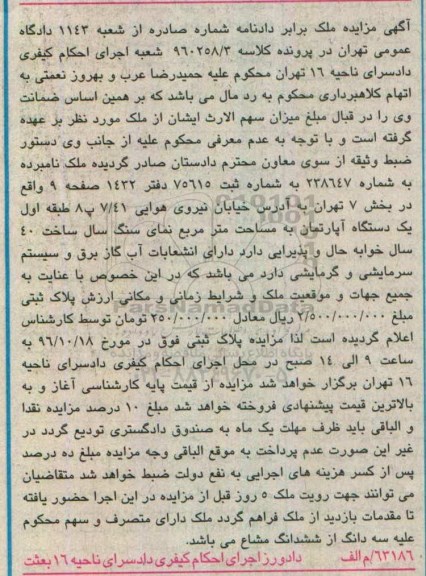 آگهی مزایده ملک برابر دادنامه شماره صادره از شعبه ۱۱۴۳ دادگاه
عمومی تهران در پرونده کلاسه ۹۶۰۲۵۸/۳ شعبه اجرای احکام کیفری
دادسرای ناحیه ۱۶ تهران محکوم علیه حمیدرضا عرب و بهروز نعمتی به
اتهام کلاهبرداری محکوم به رد مال می باشد که بر همین اساس ضمانت
وی را در قبال مبلغ میزان سهم الارث ایشان از ملک مورد نظر بر عهده
گرفته است و با توجه به عدم معرفی محکوم علیه از جانب وی دستور
ضبط وثیقه از سوی معاون محترم دادستان صادر گردیده ملک نامبرده
به شماره ۲۳۸۶۴۷ به شماره ثبت ۷۵۶۱۵ دفتر ۱۴۳۲ صفحه ۹ واقع
در بخش ۷ تهران به آدرس خیابان نیروی هوایی ۷/۴۱ پ۸ طبقه اول
یک دستگاه آپارتمان به مساحت متر مربع نمای سنگ سال ساخت ۴۰
سال خوابه حال و پذیرایی دارد دارای انشعابات آب گاز برق و سیستم
سرمایشی و گرمایشی دارد می باشد که در این خصوص با عنایت به
جمیع جهات و موقعیت ملک و شرایط زمانی و مکانی ارزش پلاک ثبتی
مبلغ ۲/۵۰۰/۰۰۰/۰۰۰ ریال معادل ۲۵۰/۰۰۰/۰۰۰ تومان توسط کارشناس
اعلام گردیده است لذا مزایده پلاک ثبتی فوق در مورخ ۹۶/۱۰/۱۸ به
ساعت ۹ الی ۱۴ صبح در محل اجرای احکام کیفری دادسرای ناحیه
۱۶ تهران برگزار خواهد شد مزایده از قیمت پایه کارشناسی آغاز و به
بالاترین قیمت پیشنهادی فروخته خواهد شد مبلغ ۱۰ درصد مزایده نقدا
و الباقی باید ظرف مهلت یک ماه به صندوق دادگستری تودیع گردد در
غیر این صورت عدم پرداخت به موقع الباقی وجه مزایده مبلغ ده درصد
پس از کسر هزینه های اجرایی به نفع دولت ضبط خواهد شد متقاضیان
می توانند جهت رویت ملک ۵ روز قبل از مزایده در این اجرا حضور یافته
تا مقدمات بازدید از ملک فراهم گردد ملک دارای متصرف و سهم محکوم
علیه سه دانگ از ششدانگ مشاع می باشد.
۶۳۱۸۶/م الف دادورز اجرای احکام کیفری دادسرای ناحیه ۱۶ بعثت